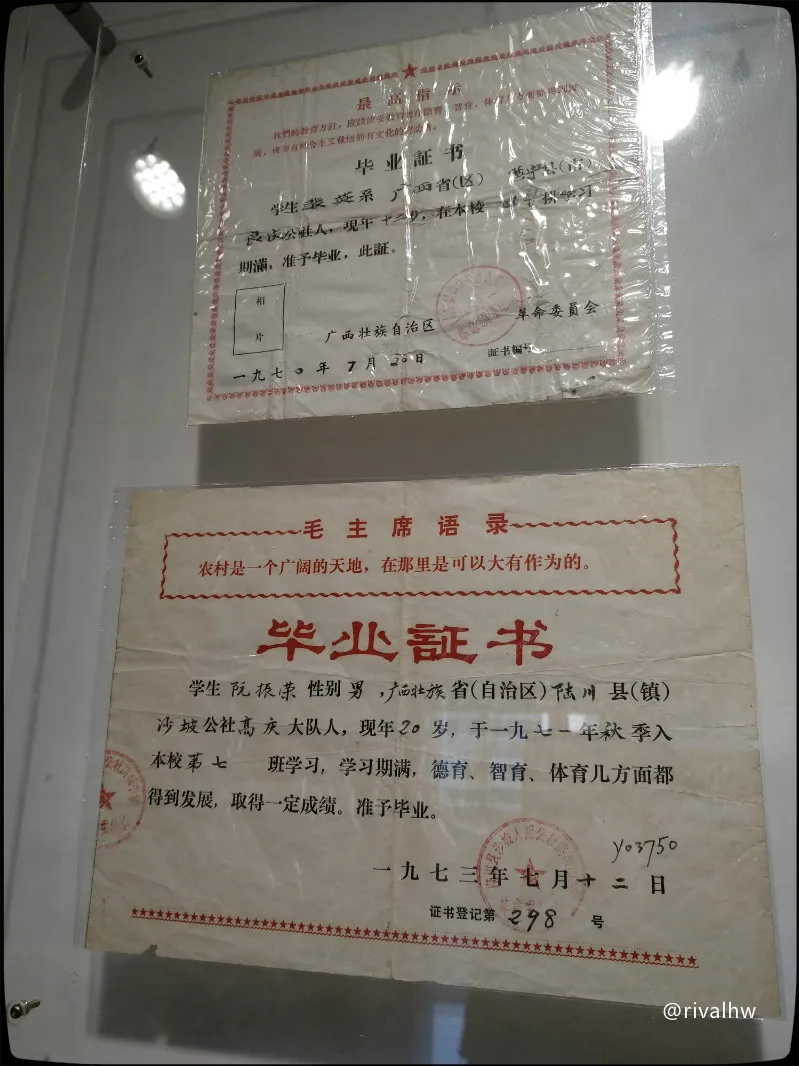 最高指示
我們的教育方針，应該使受教育者在德育、智育、体育几方面都得到发
展，成为有社会主义觉悟的有文化的劳动者。
毕业証书
学生 英系 广西省(区) 县(市)
公社人，現年十二岁，在本校 学习
期滿，准予毕业，此証。
相
片
广西壮族自治区 革命委员会
证书编号
一九七〇年7月20日
毛主席语录
农村是一个广阔的天地，在那里是可以大有作为的。
毕业証书
学生 阮振荣 性别 男，广西壮族省(自治区)陆川县(镇)
沙坡公社高庆大队人，现年20岁，于一九七一年秋季入
本校第七 班学习，学习期满，德育、智育、体育几方面都
得到发展，取得一定成绩。准予毕业。
y03750
一九七三年七月十二日
证书登记第 298 号
@rivalhw